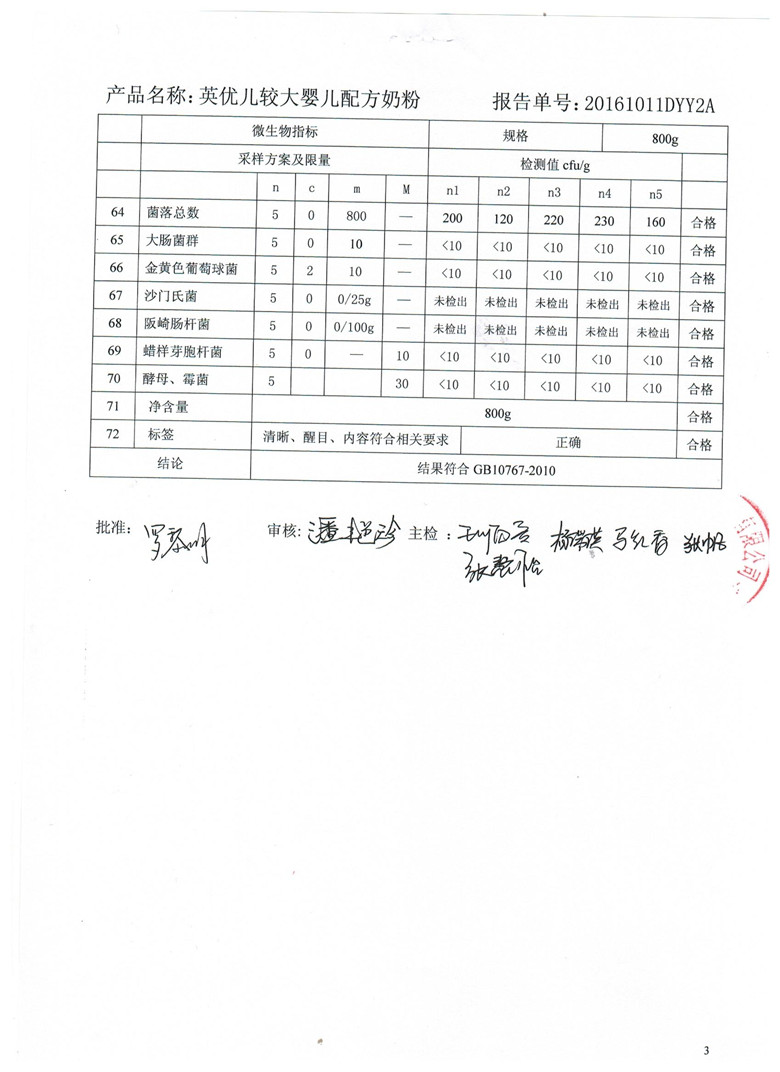 产品名称:英优儿较大婴儿配方奶粉 报告单号:20161011DYY2A
微生物指标 规格 800g
采样方案及限量 检测值 cfu/g
n c m M n1 n2 n3 n4 n5
64 菌落总数 5 0 800 — 200 120 220 230 160 合格
65 大肠菌群 5 0 10 — <10 <10 <10 <10 <10 合格
66 金黄色葡萄球菌 5 2 10 — <10 <10 <10 <10 <10 合格
67 沙门氏菌 5 0 0/25g — 未检出 未检出 未检出 未检出 未检出 合格
68 阪崎肠杆菌 5 0 0/100g — 未检出 未检出 未检出 未检出 未检出 合格
69 蜡样芽胞杆菌 5 0 — 10 <10 <10 <10 <10 <10 合格
70 酵母、霉菌 5 30 <10 <10 <10 <10 <10 合格
71 净含量 800g 合格
72 标签 清晰、醒目、内容符合相关要求 正确 合格
结论 结果符合 GB10767-2010
批准: 审核: 主检:
有限公司
3